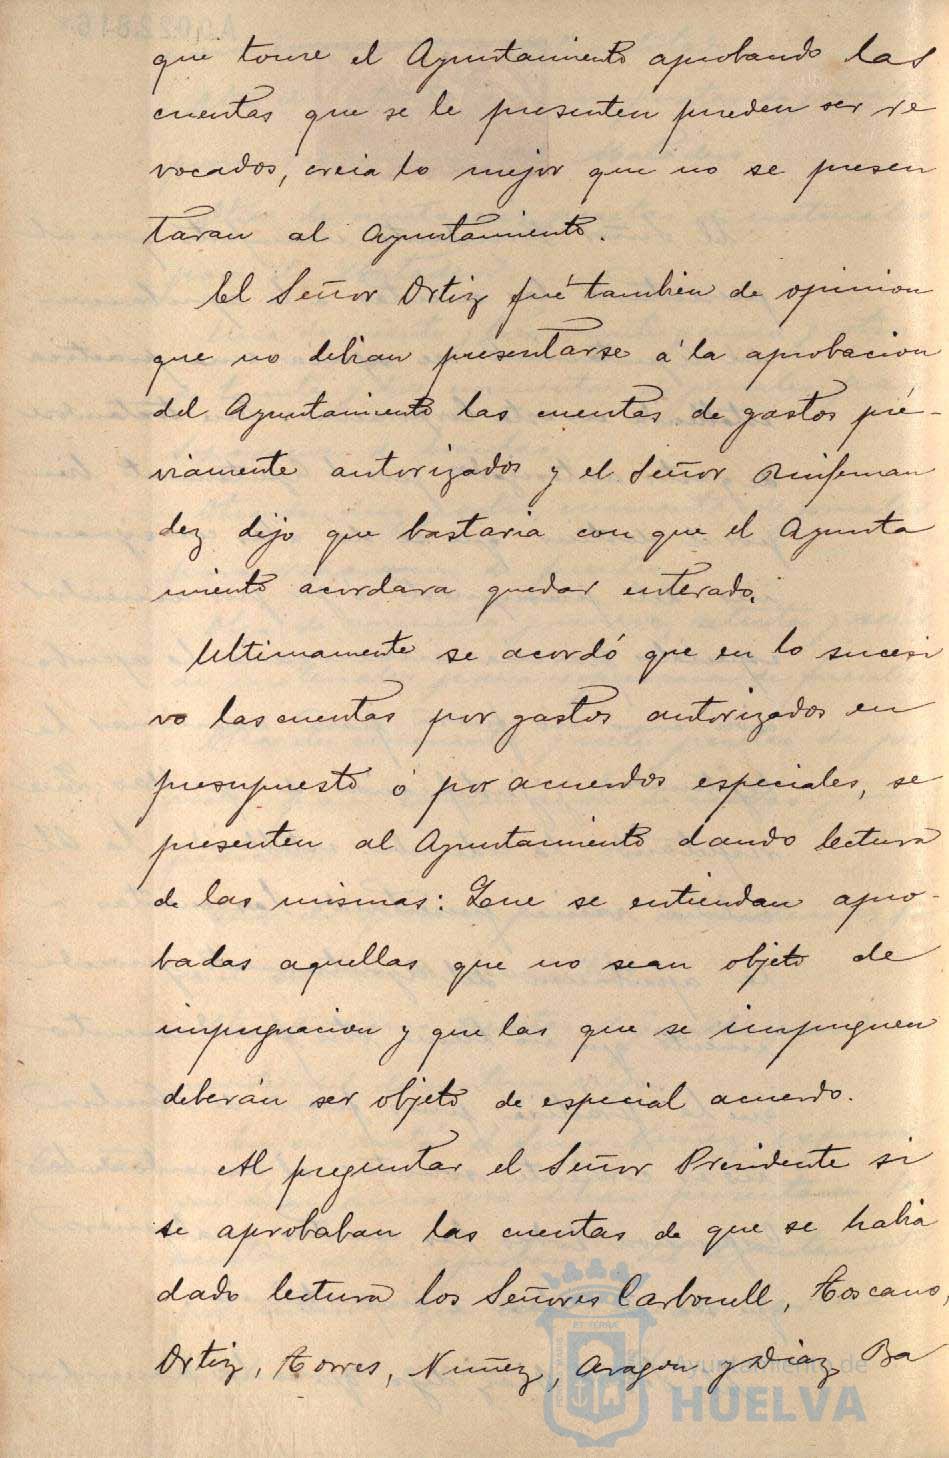 que tome el Ayuntamiento aprobando las
cuentas que se le presenten pueden ser re
vocados, creia lo mejor que no se presen
taran al Ayuntamiento.
El Señor Ortiz fué tambien de opinion
que no debian presentarse á la aprobacion
del Ayuntamiento las cuentas de gastos pré-
viamente autorizados y el Señor Ruifernan
dez dijo que bastaria con que el Ayunta
miento acordara quedar enterado.
Ultimamente se acordó que en lo sucesi
vo las cuentas por gastos autorizados en
presupuesto ó por acuerdos especiales, se
presenten al Ayuntamiento dando lectura
de las mismas: Que se entiendan apro-
badas aquellas que no sean objeto de
impugnacion y que las que se impugnen
deberán ser objeto de especial acuerdo.
Al preguntar el Señor Presidente si
se aprobaban las cuentas de que se habia
dado lectura los Señores Carbonell, Toscano,
Ortiz, Torres, Nuñez, Aragon y Diaz Ba
Ayuntamiento de
HUELVA